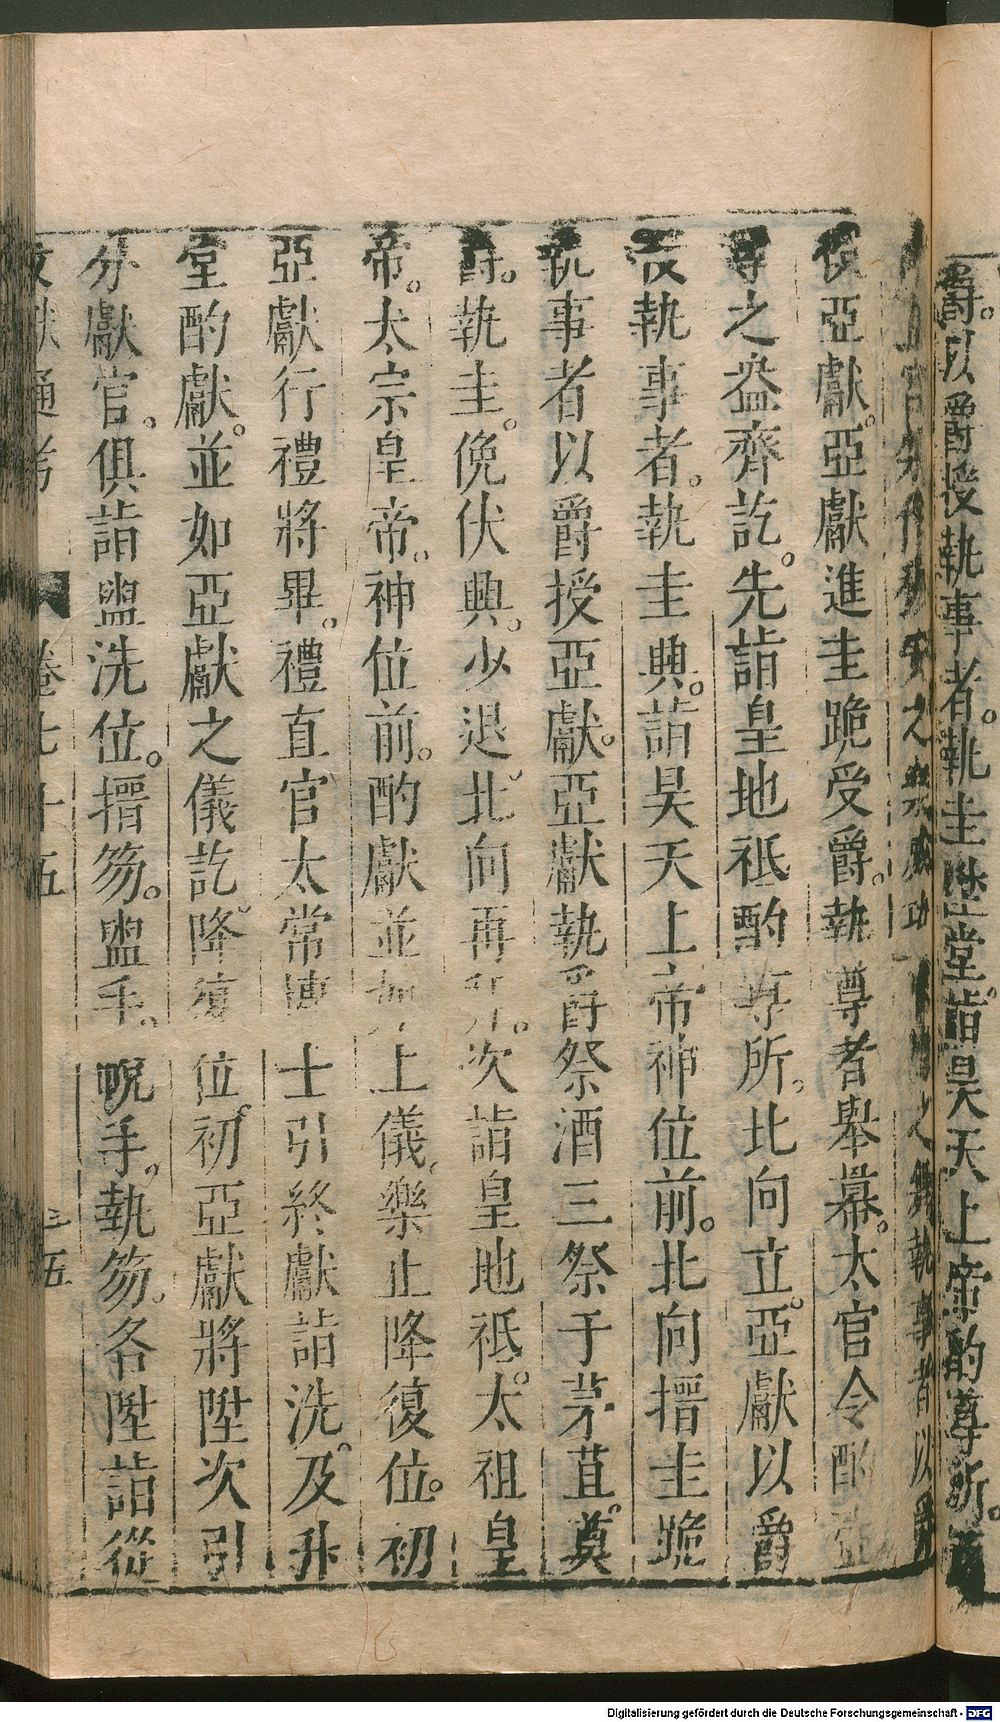 爵。以爵授執事者。執圭陞堂。詣昊天上帝酌尊所。
之舞執事者以爵
授亞獻。亞獻進圭跪受爵。執尊者舉冪。太官令酌
尊之盎齊訖。先詣皇地祇酌尊所。北向立。亞獻以爵
授執事者。執圭興。詣昊天上帝神位前。北向搢圭跪
執事者以爵授亞獻。亞獻執爵祭酒三祭于茅苴。奠
爵。執圭。俛伏興。少退。北向再拜。次詣皇地祇。太祖皇
帝。太宗皇帝。神位前。酌獻並如上儀。樂止降復位。初
亞獻行禮將畢。禮直官太常博士引終獻詣洗。及升
堂酌獻。並如亞獻之儀訖。降復位。初亞獻將陞次引
分獻官。俱詣盥洗位。搢笏。盥手。帨手。執笏。各陞詣從
文獻通考 卷七十五 三五
Digitalisierung gefördert durch die Deutsche Forschungsgemeinschaft - DFG